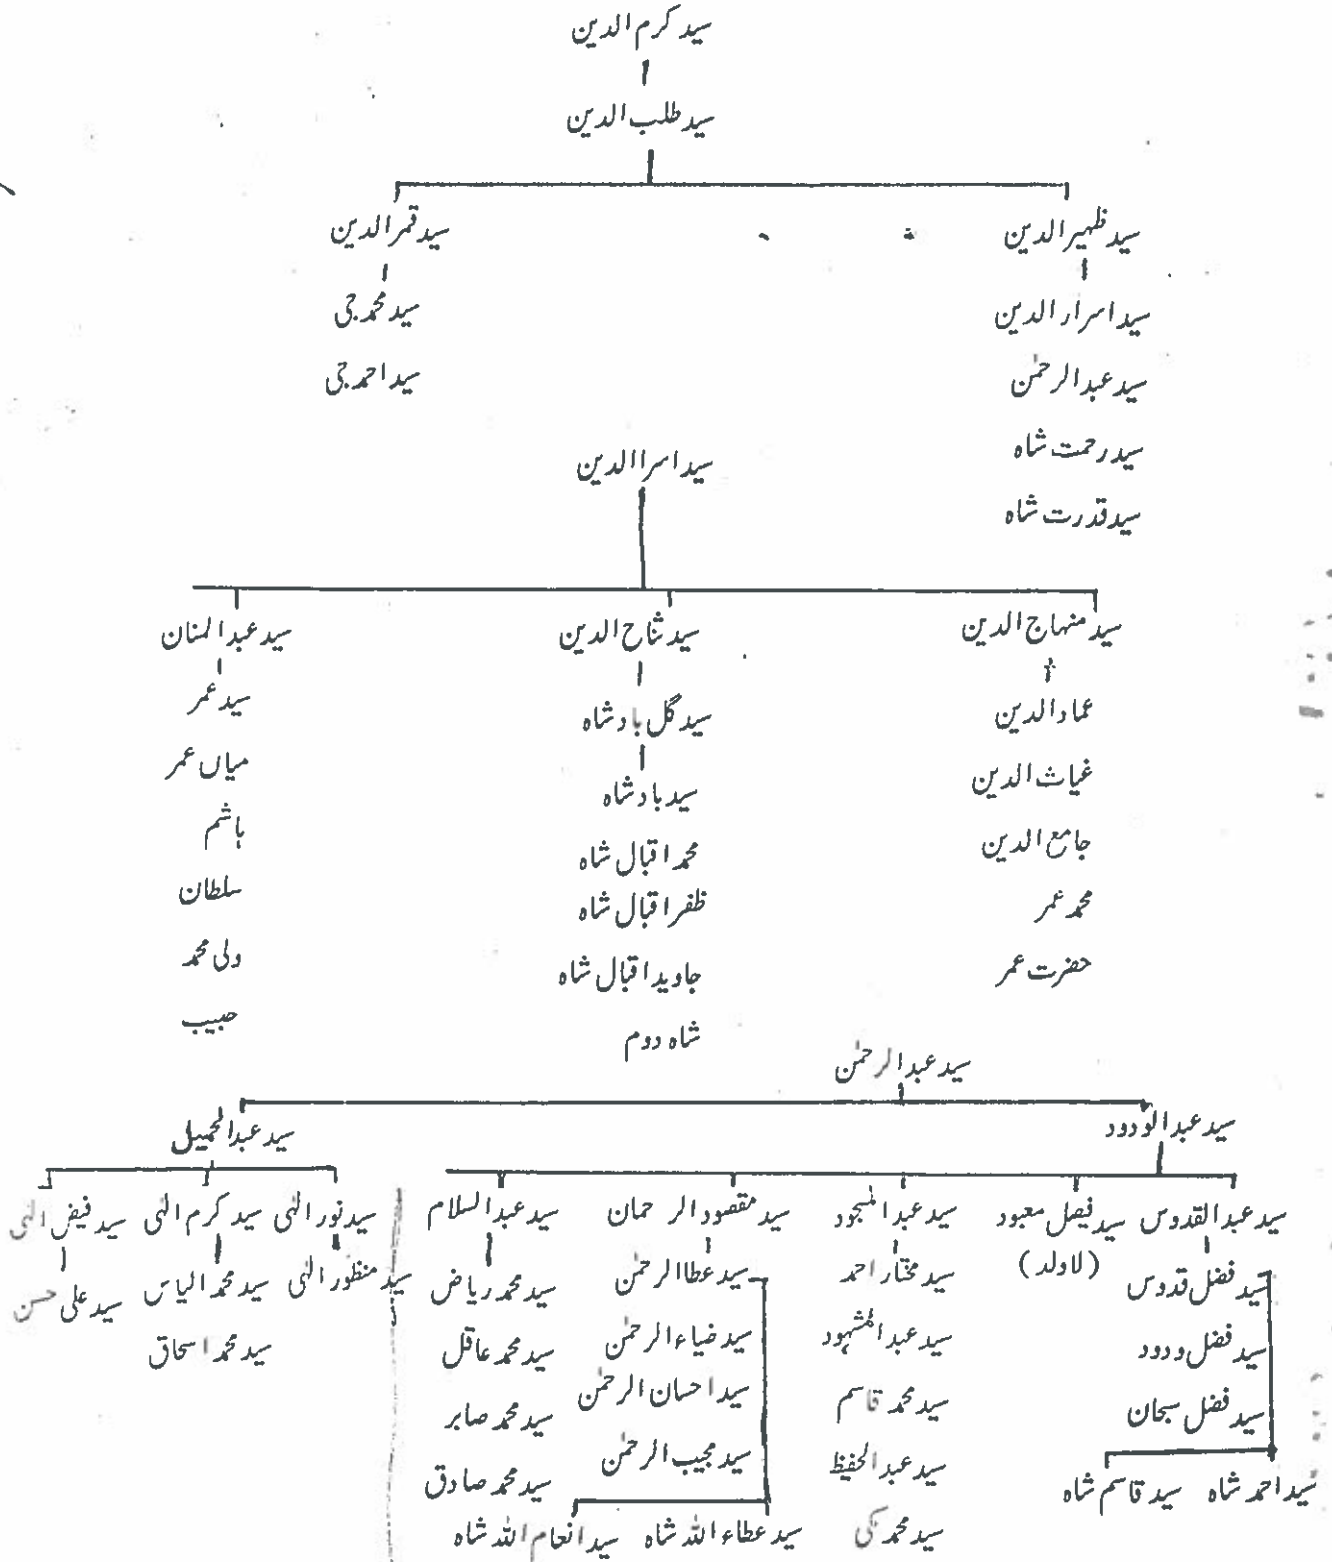 سید کرم الدین
سید طلب الدین
سید ظہیر الدین
سید قمر الدین
سید اسرار الدین
سید محمد جی
سید عبد الرحمٰن
سید احمد جی
سید رحمت شاہ
سید قدرت شاہ
سید اسرا الدین
سید منہاج الدین
عماد الدین
غیاث الدین
جامع الدین
محمد عمر
حضرت عمر
سید ثناح الدین
سید گل بادشاہ
سید بادشاہ
محمد اقبال شاہ
ظفر اقبال شاہ
جاوید اقبال شاہ
شاہ دوم
سید عبد المنان
سید عمر
میاں عمر
ہاشم
سلطان
ولی محمد
حبیب
سید عبد الرحمٰن
سید عبد الودود
سید عبد القدوس
سید فضل قدوس
سید فضل ودود
سید فضل سبحان
سید احمد شاہ سید قاسم شاہ
سید فیصل معبود
(لاولد)
سید عبد المسجود
سید مختار احمد
سید عبد المشہود
سید محمد قاسم
سید عبد الحفیظ
سید محمد
سید مقصود الر حمان
سید عطا الرحمٰن
سید ضیاء الرحمٰن
سید احسان الرحمٰن
سید مجیب الرحمٰن
سید عطاء اللہ شاہ سید انعام اللہ شاہ
سید عبد السلام
سید محمد ریاض
سید محمد عاقل
سید محمد صابر
سید محمد صادق
سید عبد الحمیل
سید نور الٰہی
سید منظور الٰہی
سید کرم الٰہی
سید محمد الیاس
سید محمد اسحاق
سید فیض الٰہی
سید علی حسن